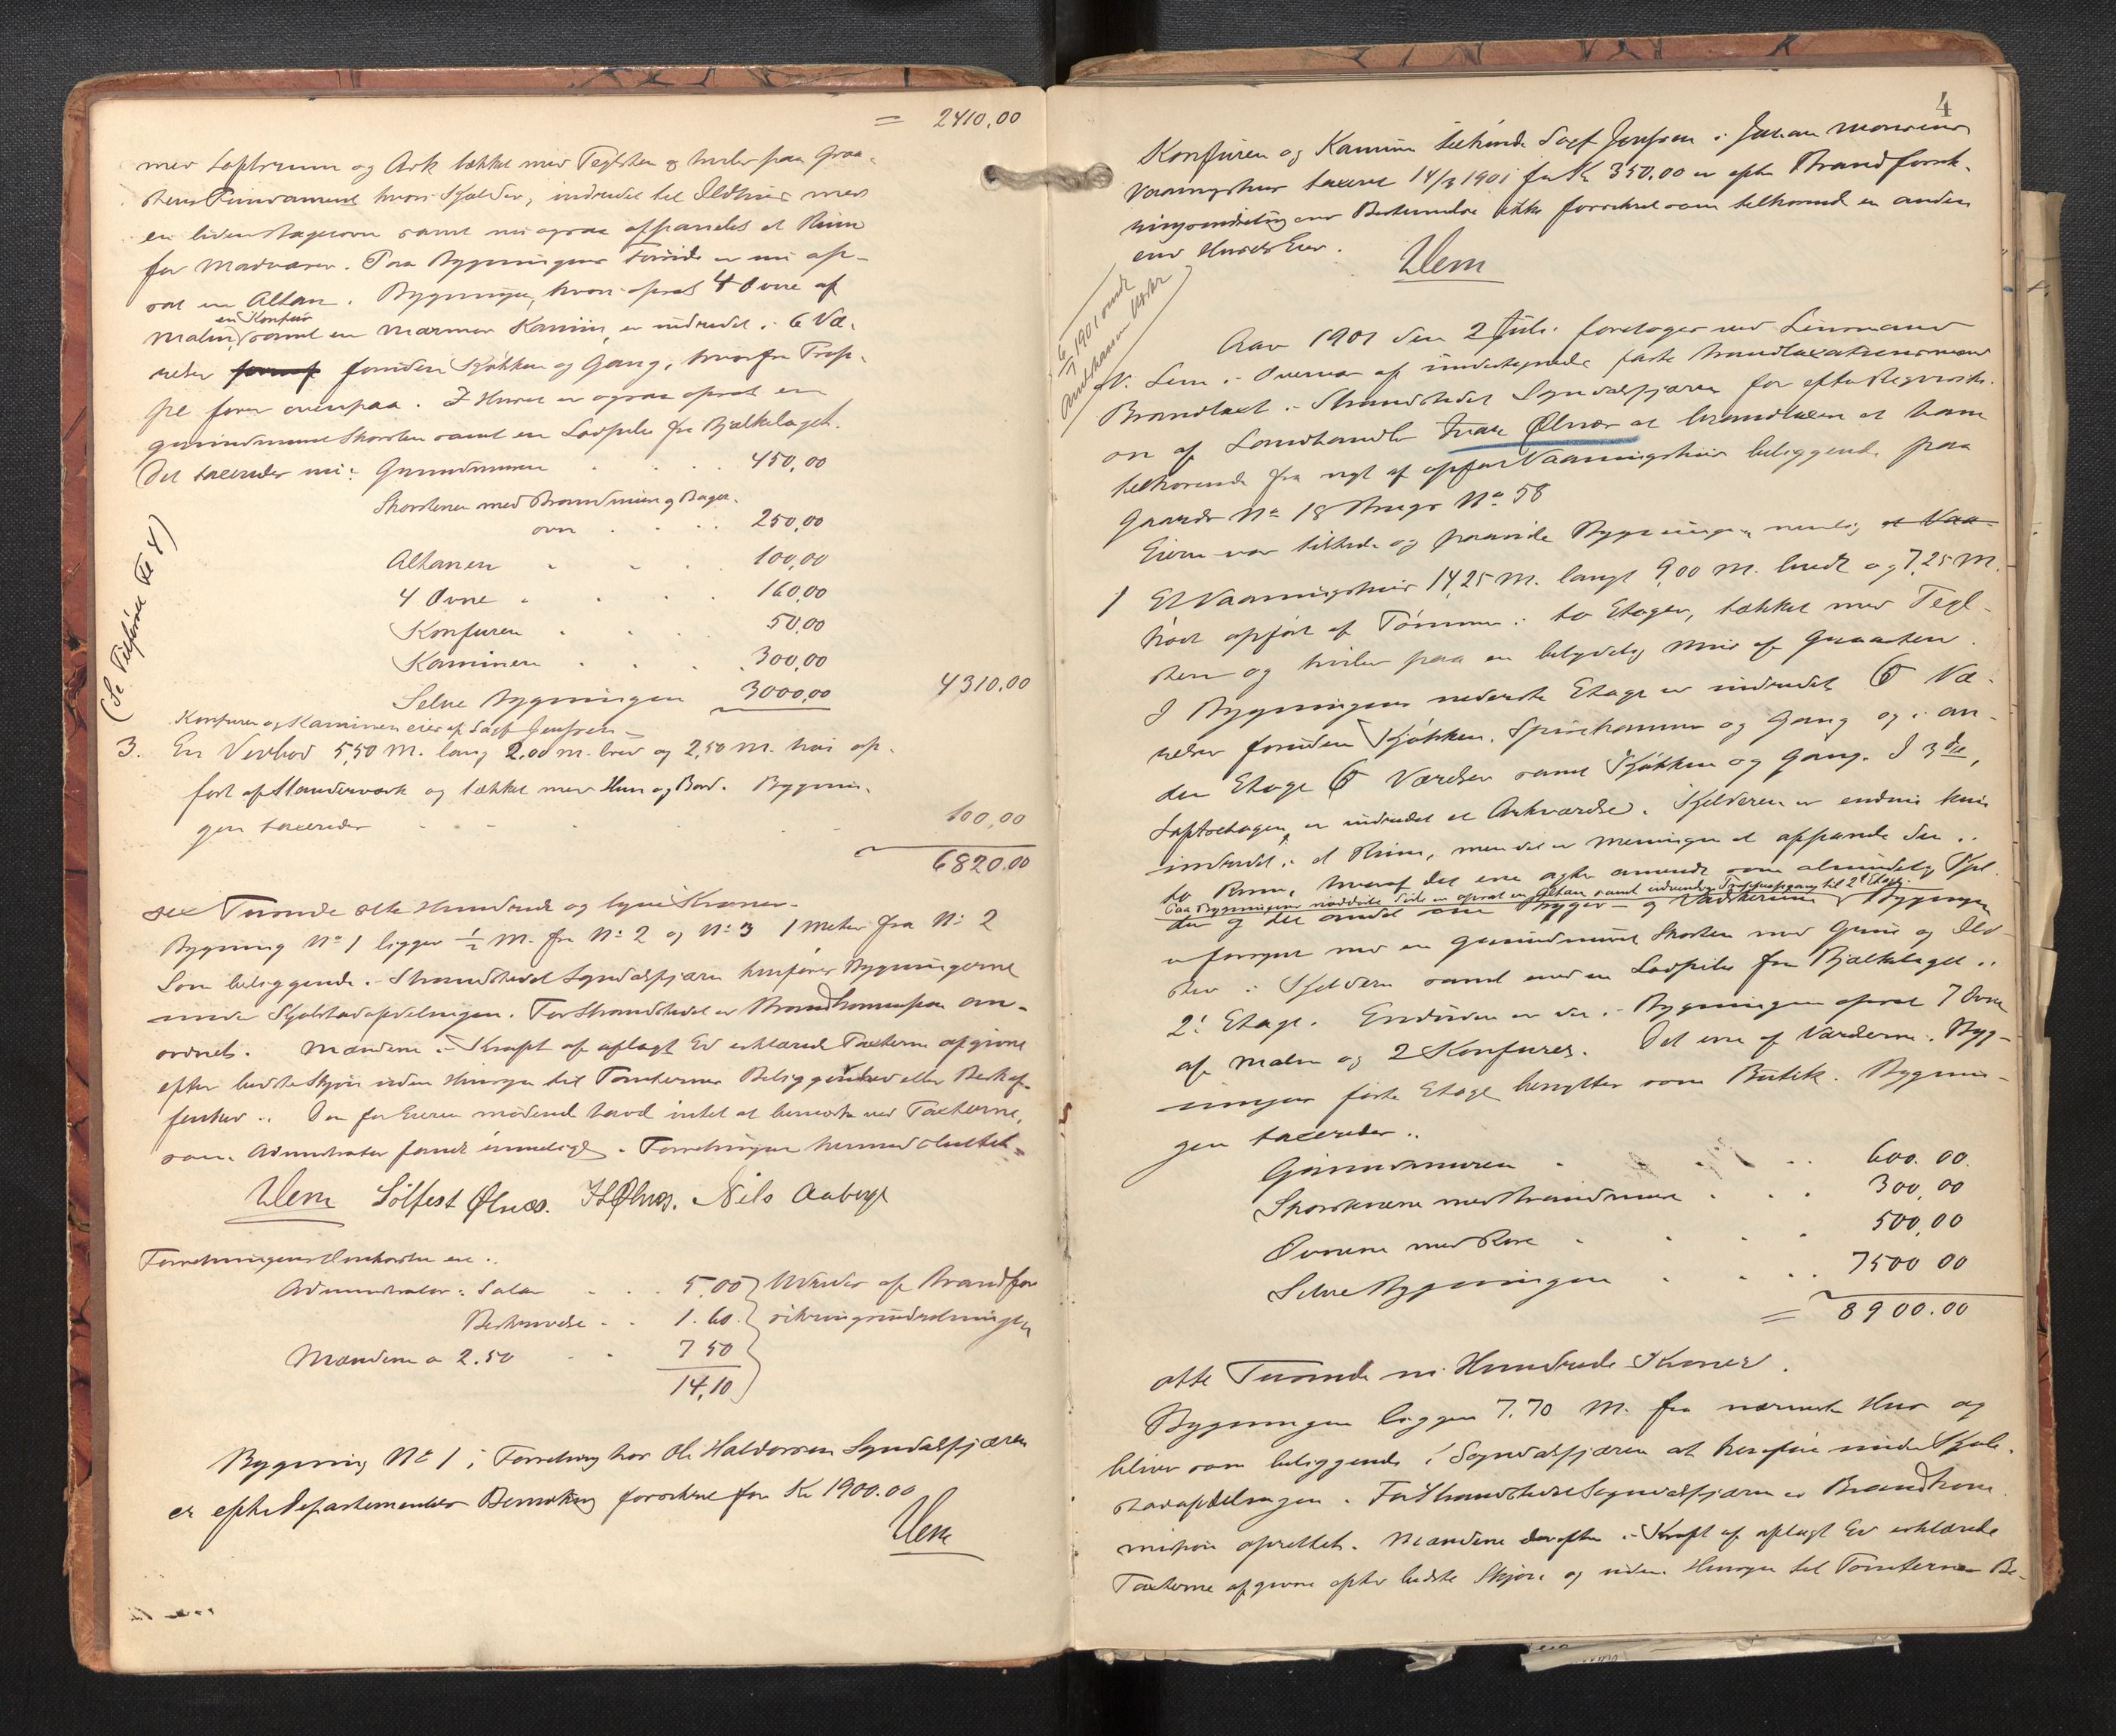 = 2410,00
med Loftsrum og Ark tækket med Teglsten og hviler paa Graa-
stens Fundament hvori Kjelder, indredet til Ildhus med
en liden Bagerovn samt nu ogsaa afpanelet et Rum
for Madvarer. Paa Bygningens Forside er nu op-
sat en Altan. Bygningen, hvori opsat 4 Ovne af
en Konfur
Malm, samt en Marmor Kamin, er indredet i 6 Væ-
relser foruden Kjøkken og Gang, hvorfra Trap-
pe fører ovenpaa. I Huset er ogsaa opsat en
gjennemmuret Skorsten samt en Lodpibe fra Bjælkelaget.
Det taxeredes nu: Grundmuren 450,00
Skorstenen med Brandmur og Bager-
ovn 250,00
Altanen 100,00
4 Ovne 160,00
Konfuren 50,00
Kaminen 300,00
Selve Bygningen 3000,00 4310,00
(Se Tilførsel Fo 4)
Konfuren og Kaminen eies af Sjef Jenssen
3. En Vedbod 5,50 M. lang 2,00 M. bred og 2,50 M. høi op-
ført af Standerværk og tækket med Hun og Bord. Bygnin-
gen taxeredes 100,00
6820.00
sex Tusinde otte Hundrede og tyve Kroner.
Bygning No 1 ligger ½ M. fra No 2 og No 3 1 Meter fra No 2
Som beliggende i Strandstedet Sogndalsfjæren henføres Bygningerne
under Kjøbstadafdelingen. For Strandstedet er Brandkommission an-
ordnet. Mændene i Kraft af aflagt Ed erklærede Taxterne afgivne
efter bedste Skjøn uden Hensyn til Tomternes Beliggenhed eller Beskaf-
fenhed. Den for Eieren mødende havde intet at bemærke ved Taxterne,
som Administrator fandt rimelige. Forretningen hermed sluttet.
Uem Sølfest Ølnæs. Nils Aaberge
Forretningens Omkostn. er:
Administrator: Salær 5,00 Udredes af Brandfor-
Beskrivelse 1.60 sikringsindretningen
Mændene a 2.50 7 50
14,10
Bygning No 1 i Forretning hos Ole Haldorsen Sogndalsfjæren
er efter Departementets Bemærkning forsikret for Kr 1900.00
Uem
4
Konfuren og Kaminen tilhørende Sjef Jenssen i Johan Monsens
Vaaningshus taxeret 14/3 1901 for Kr 350.00 er efter Brandforsik-
ringsindretningens Bestemmelse ikke forsikret som tilhørende en anden
end Husets Eier.
Uem
Aar 1901 den 2 Juli foretoges ved Lensmand
N. Lem i Overvær af undertegnede faste Brandtaxationsmænd
Brandtaxt i Strandstedet Sogndalsfjæren for efter Requisiti-
on af Landhandler Ivar Ølnæs at brandtaxere et ham
tilhørende fra nyt af opført Vaaningshus beliggende paa
Gaards No 18 Brugs No 58
Eieren var tilstede og paaviste Bygningen nemlig et Vaa-
1 Et Vaaningshus 14,25 M. langt 9,00 M. bredt og 7,25 M.
høit opført af Tømmer i to Etager, tækket med Tegl-
sten og hviler paa en betydelig Mur af Graasten.
I Bygningens nederste Etage er indredet 6 Væ-
relser foruden Kjøkken, Spisekammer og Gang og i an-
den Etage 6 Værelser samt Kjøkken og Gang. I 3die,
Loftsetagen, er indredet et Arkværelse. Kjelderen er endnu kun
indredet i et Rum, men det er Meningen at afpanele den i
to Rum, hvoraf det ene agtes anvendt som almindelig Kjel-
Paa Bygningens nordvestre Side er opsat en Altan samt udvendig Trappeopgang til 2d Etage.
der og det andet som Brygger- og Vaskerum. Bygningen
er forsynt med en gjennemmuret Skorsten med Grue og Ild-
sted i Kjelderen samt med en Lodpibe fra Bjælkelaget i
2: Etage. Endvidere er der i Bygningen opsat 7 Ovne
af Malm og 2 Konfurer. Det ene af Værelserne i Byg-
ningens første Etage benyttes som Butik. Bygnin-
gen taxeredes:
Grundmuren 600.00
Skorstenene med Brandmure 300,00
Ovnene med Rør 500,00
Selve Bygningen 7500 00
= 8900.00
otte Tusinde ni Hundrede Kroner.
Bygningen ligger 7.70 M. fra nærmeste Hus og
bliver som beliggende i Sogndalsfjæren at henføre under Kjøb-
stadafdelingen. For Strandstedet Sogndalsfjæren er Brandkom-
mission oprettet. Mændene derefter i Kraft af aflagt Ed erklærede
Taxterne afgivne efter bedste Skjøn og uden Hensyn til Tomternes Be-